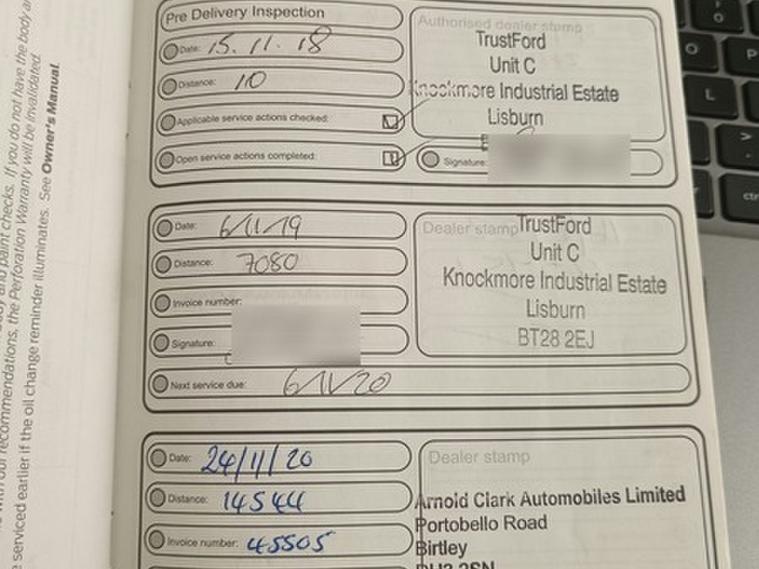 with our recommendations, the Perforation Warranty will be invalidated.
body and paint checks. If you do not have the body and
serviced earlier if the oil change reminder illuminates. See Owner's Manual.
Pre Delivery Inspection
Date: 15.11.18
Distance: 10
Applicable service actions checked:
Open service actions completed:
Authorised dealer stamp
TrustFord
Unit C
Knockmore Industrial Estate
Lisburn
Signature:
Date: 6/11/19
Distance: 7080
Invoice number:
Signature:
Next service due: 6/11/20
Dealer stamp
TrustFord
Unit C
Knockmore Industrial Estate
Lisburn
BT28 2EJ
Date: 24/11/20
Distance: 14544
Invoice number: 45505
Dealer stamp
Arnold Clark Automobiles Limited
Portobello Road
Birtley
O
P
L
ctr